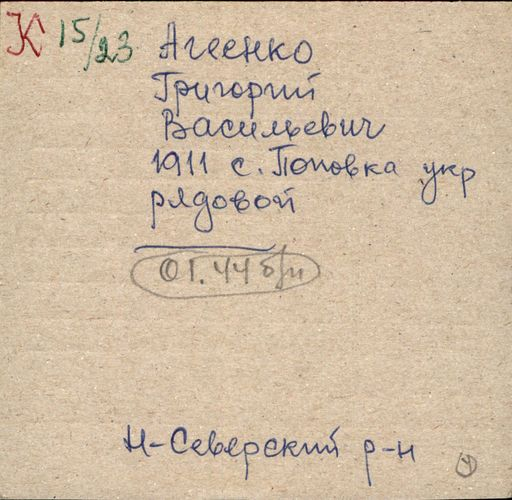 К 15/23
Агеенко
Григорий
Васильевич
1911 с. Поповка укр
рядовой
01.44 б/и
Н-Северский р-н